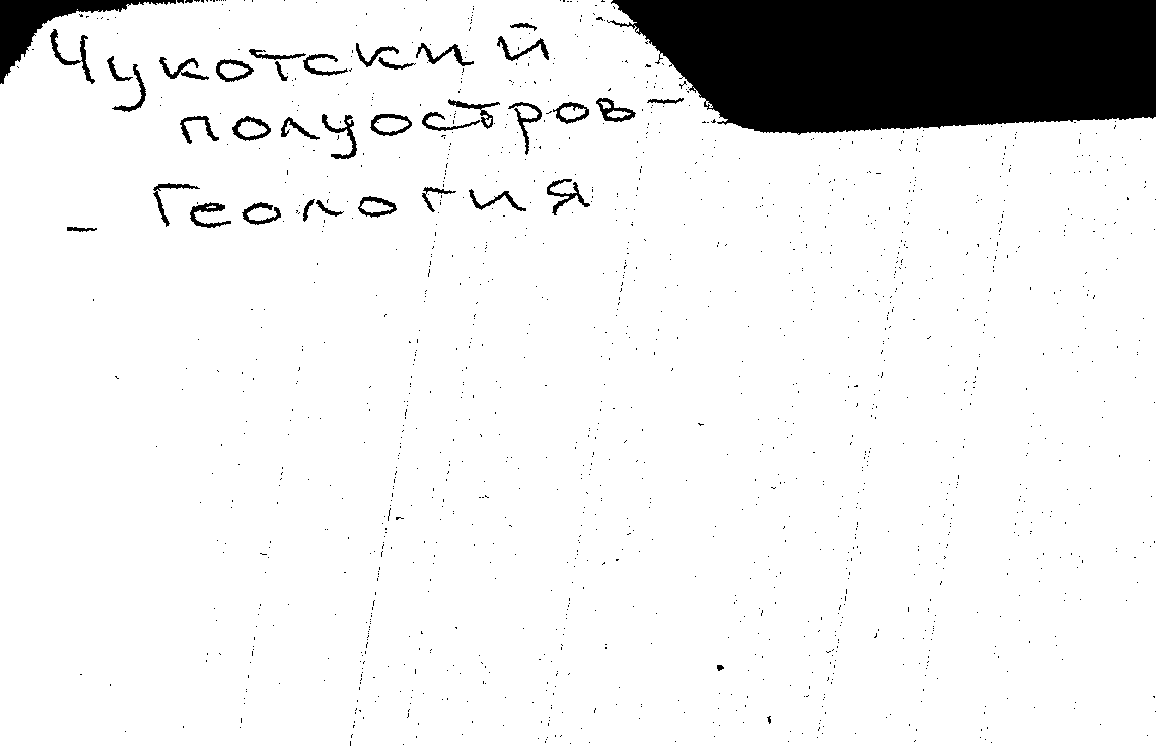 Чукотский
полуостров –
– Геология